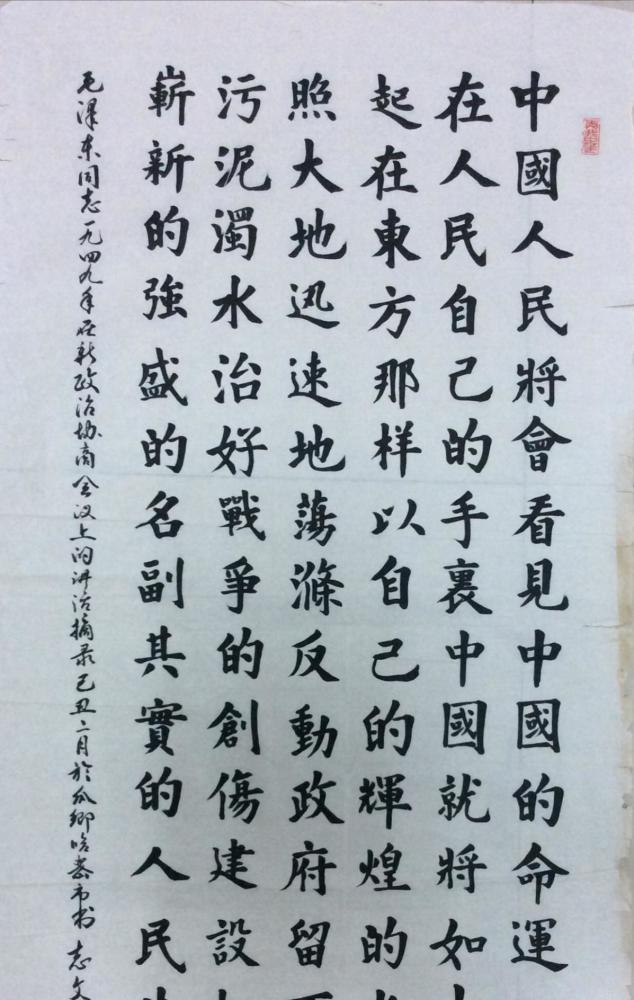 中國人民將會看見中國的命運
在人民自己的手裏中國就將如
起在東方那样以自己的輝煌的
照大地迅速地蕩滌反動政府留
污泥濁水治好戰爭的創傷建設
嶄新的強盛的名副其實的人民
毛澤東同志一九四九年在新政治协商会议上的讲话摘录己丑二月於瓜鄉 志文